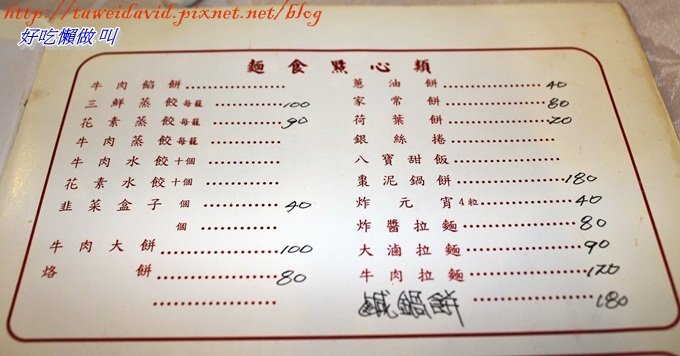 http://taweidavid.pixnet.net/blog
好吃懶做 叫
麵食點心類
牛肉餡餅
三鮮蒸餃每籠 100
花素蒸餃每籠 90
牛肉蒸餃每籠
牛肉水餃十個
花素水餃十個
韭菜盒子個 40
個
牛肉大餅 100
烙餅 80
蔥油餅 40
家常餅 80
荷葉餅 20
銀絲捲
八寶甜飯
棗泥鍋餅 180
炸元宵4粒 40
炸醬拉麵 80
大滷拉麵 90
牛肉拉麵 120
鹹鍋餅 180